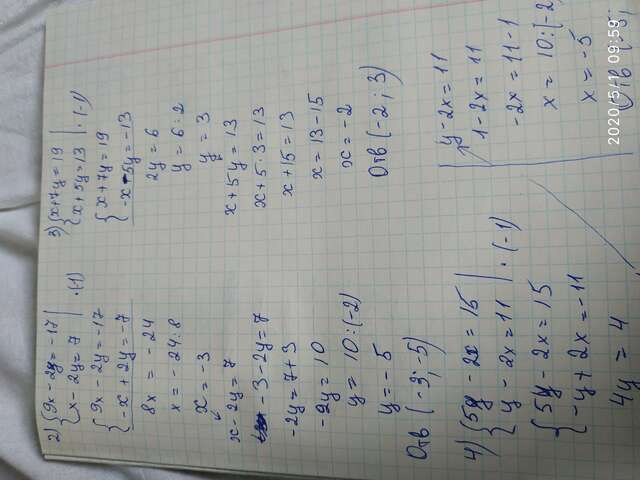 2) { 9x - 2y = -17 |
{ x - 2y = 7 | · (1)
{ 9x - 2y = -17
{ -x + 2y = -7
8x = -24
x = -24 : 8
x = -3
x - 2y = 7
-3 - 2y = 7
-2y = 7 + 3
-2y = 10
y = 10 : (-2)
y = -5
Отв (-3; -5)
3) { x + 7y = 19 |
{ x + 5y = 13 | · (-1)
{ x + 7y = 19
{ -x - 5y = -13
2y = 6
y = 6 : 2
y = 3
x + 5y = 13
x + 5 · 3 = 13
x + 15 = 13
x = 13 - 15
x = -2
Отв (-2; 3)
4) { 5y - 2x = 15 |
{ y - 2x = 11 | · (-1)
{ 5y - 2x = 15
{ -y + 2x = -11
4y = 4
y - 2x = 11
1 - 2x = 11
-2x = 11 - 1
x = 10 : (-2
x = -5
2020/5/11 09:59